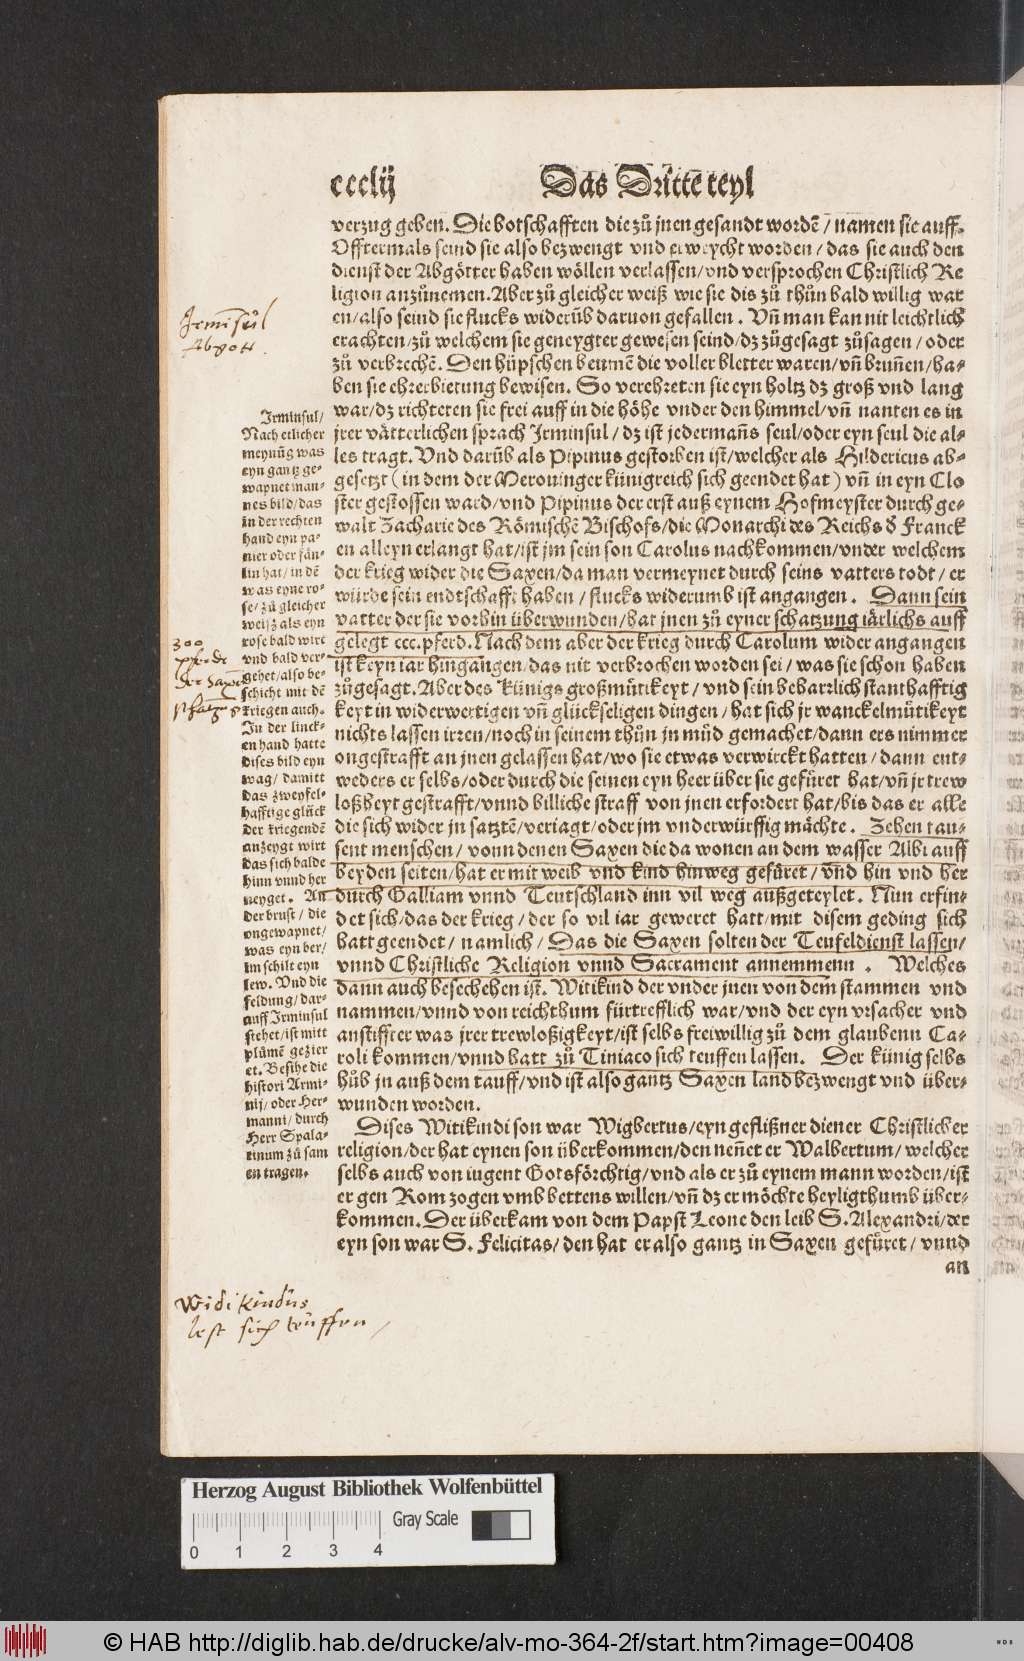 ccclij Das Dritte teyl
verzug geben. Die botschafften die zuͦ jnen gesandt wordẽ / namen sie auff.
Offtermals seind sie also bezwengt vnd erweycht worden / das sie auch den
dienst der Abgoͤtter haben woͤllen verlassen / vnd versprochen Christlich Re
ligion anzuͦnemen. Aber zuͦ gleicher weiß wie sie dis zuͦ thuͦn bald willig war
en / also seind sie flucks widerũb daruon gefallen. Vñ man kan nit leichtlich
erachten / zuͦ welchem sie geneygter gewesen seind / dz zuͦgesagt zuͦsagen / oder
zuͦ verbrechẽ. Den hüpschen beumẽ die voller bletter waren / vñ bruñen / ha-
ben sie ehrerbietung bewisen. So verehreten sie eyn holtz dz groß vnd lang
war / dz richteten sie frei auff in die hoͤhe vnder den himmel / vñ nanten es in
jrer vaͤtterlichen sprach Irminsul / dz ist jedermañs seul / oder eyn seul die al-
les tragt. Vnd darũb als Pipinus gestorben ist / welcher als Hildericus ab-
gesetzt ( in dem der Merouinger künigreich sich geendet hat ) vñ in eyn Clo
ster gestossen ward / vnd Pipinus der erst auß eynem Hofmeyster durch ge-
walt Zacharie des Roͤmischẽ Bischofs / die Monarchi des Reichs ð Franck
en alleyn erlangt hat / ist jm sein son Carolus nachkommen / vnder welchem
der krieg wider die Saxen / da man vermeynet durch seins vatters todt / er
würde sein endtschafft haben / flucks widerumb ist angangen. Dann sein
vatter der sie vorhin überwunden / hat jnen zuͦ eyner schatzung iaͤrlichs auff
gelegt ccc. pferd. Nach dem aber der krieg durch Carolum wider angangen
ist keyn iar hingangen / das nit verbrochen worden sei / was sie schon haben
zuͦgesagt. Aber des Künigs großmuͤtikeyt / vnd sein beharzlich stanthafftig
keyt in widerwertigen vñ glückseligen dingen / hat sich jr wanckelmuͤtikeyt
nichts lassen irren / noch in seinem thuͦn in muͤd gemachet / dann ers nimmer
ongestrafft an jnen gelassen hat / wo sie etwas verwirckt hatten / dann ent-
weders er selbs / oder durch die seinen eyn heer über sie gefuͤret hat / vñ jr trew
loßheyt gestrafft / vnnd billiche straff von jnen erfordert hat / bis das er alle
die sich wider jn satztẽ / veriagt / oder jm vnderwürffig maͤchte. Zehen tau-
sent menschen / vonn denen Saxen die da wonen an dem wasser Albi auff
beyden seiten / hat er mit weib vnd kind hinweg gefuͤret / vñd hin vnd her
durch Galliam vnnd Teutschland inn vil weg außgeteylet. Nun erfin-
det sich / das der krieg / der so vil iar geweret hatt / mit disem geding sich
hatt geendet / namlich / Das die Saxen solten der Teufeldienst lassen /
vnnd Christliche Religion vnnd Sacrament annemmenn. Welches
dann auch beschehen ist. Witikind der vnder jnen von dem stammen vnd
nammen / vnnd von reichthum fürtrefflich war / vnd der eyn vrsacher vnd
anstiffter was jrer trewloßigkeyt / ist selbs freiwillig zuͦ dem glaubenn Ca-
roli kommen / vnnd hatt zuͦ Tiniaco sich teuffen lassen. Der künig selbs
huͦb jn auß dem tauff / vnd ist also gantz Saxen land bezwengt vnd über-
wunden worden.
Dises Witikindi son war Wigbertus / eyn geflißner diener Christlicher
religion / der hat eynen son überkommen / den neñet er Walbertum / welcher
selbs auch von iugent Gotsfoͤrchtig / vnd als er zuͦ eynem mann worden / ist
er gen Rom zogen vmb bettens willen / vñ dz er moͤchte heyligthumb über-
kommen. Der überkam von dem Papst Leone den leib S. Alexandri / der
eyn son war S. Felicitas / den hat er also gantz in Saxen gefuͤret / vnnd
an
Irminsul
Abgott.
Irminsul /
Nach etlicher
meynũg was
eyn gantz ge-
wapnet man-
nes bild / das
in der rechten
hand eyn pa-
nier oder faͤn-
lin hat / in dẽ
was eyne ro-
se / zuͦ gleicher
weiß als eyn
rose bald wirt
vnd bald ver-
gehet / also be-
schicht mit dẽ
kriegen auch.
In der linck-
en hand hatte
dises bild eyn
wag / damitt
das zweyfel-
hafftige glück
der kriegendẽ
anzeygt wirt
das sich balde
hinn vnnd her
neyget. An
der brust / die
ongewapnet /
was eyn ber /
im schilt eyn
lew. Vnd die
feldung / dar-
auff Irminsul
stehet / ist mitt
pluͦmẽ gezier
et. Besihe die
histori Armi-
nij / oder Her-
manni / durch
Herr Spala-
tinum zuͦ sam
en tragen.
300
pferde
der Saxen
schatzung
Widikindus
lest sich teuffen /
Herzog August Bibliothek Wolfenbüttel
Gray Scale
0 1 2 3 4
© HAB http://diglib.hab.de/drucke/alv-mo-364-2f/start.htm?image=00408